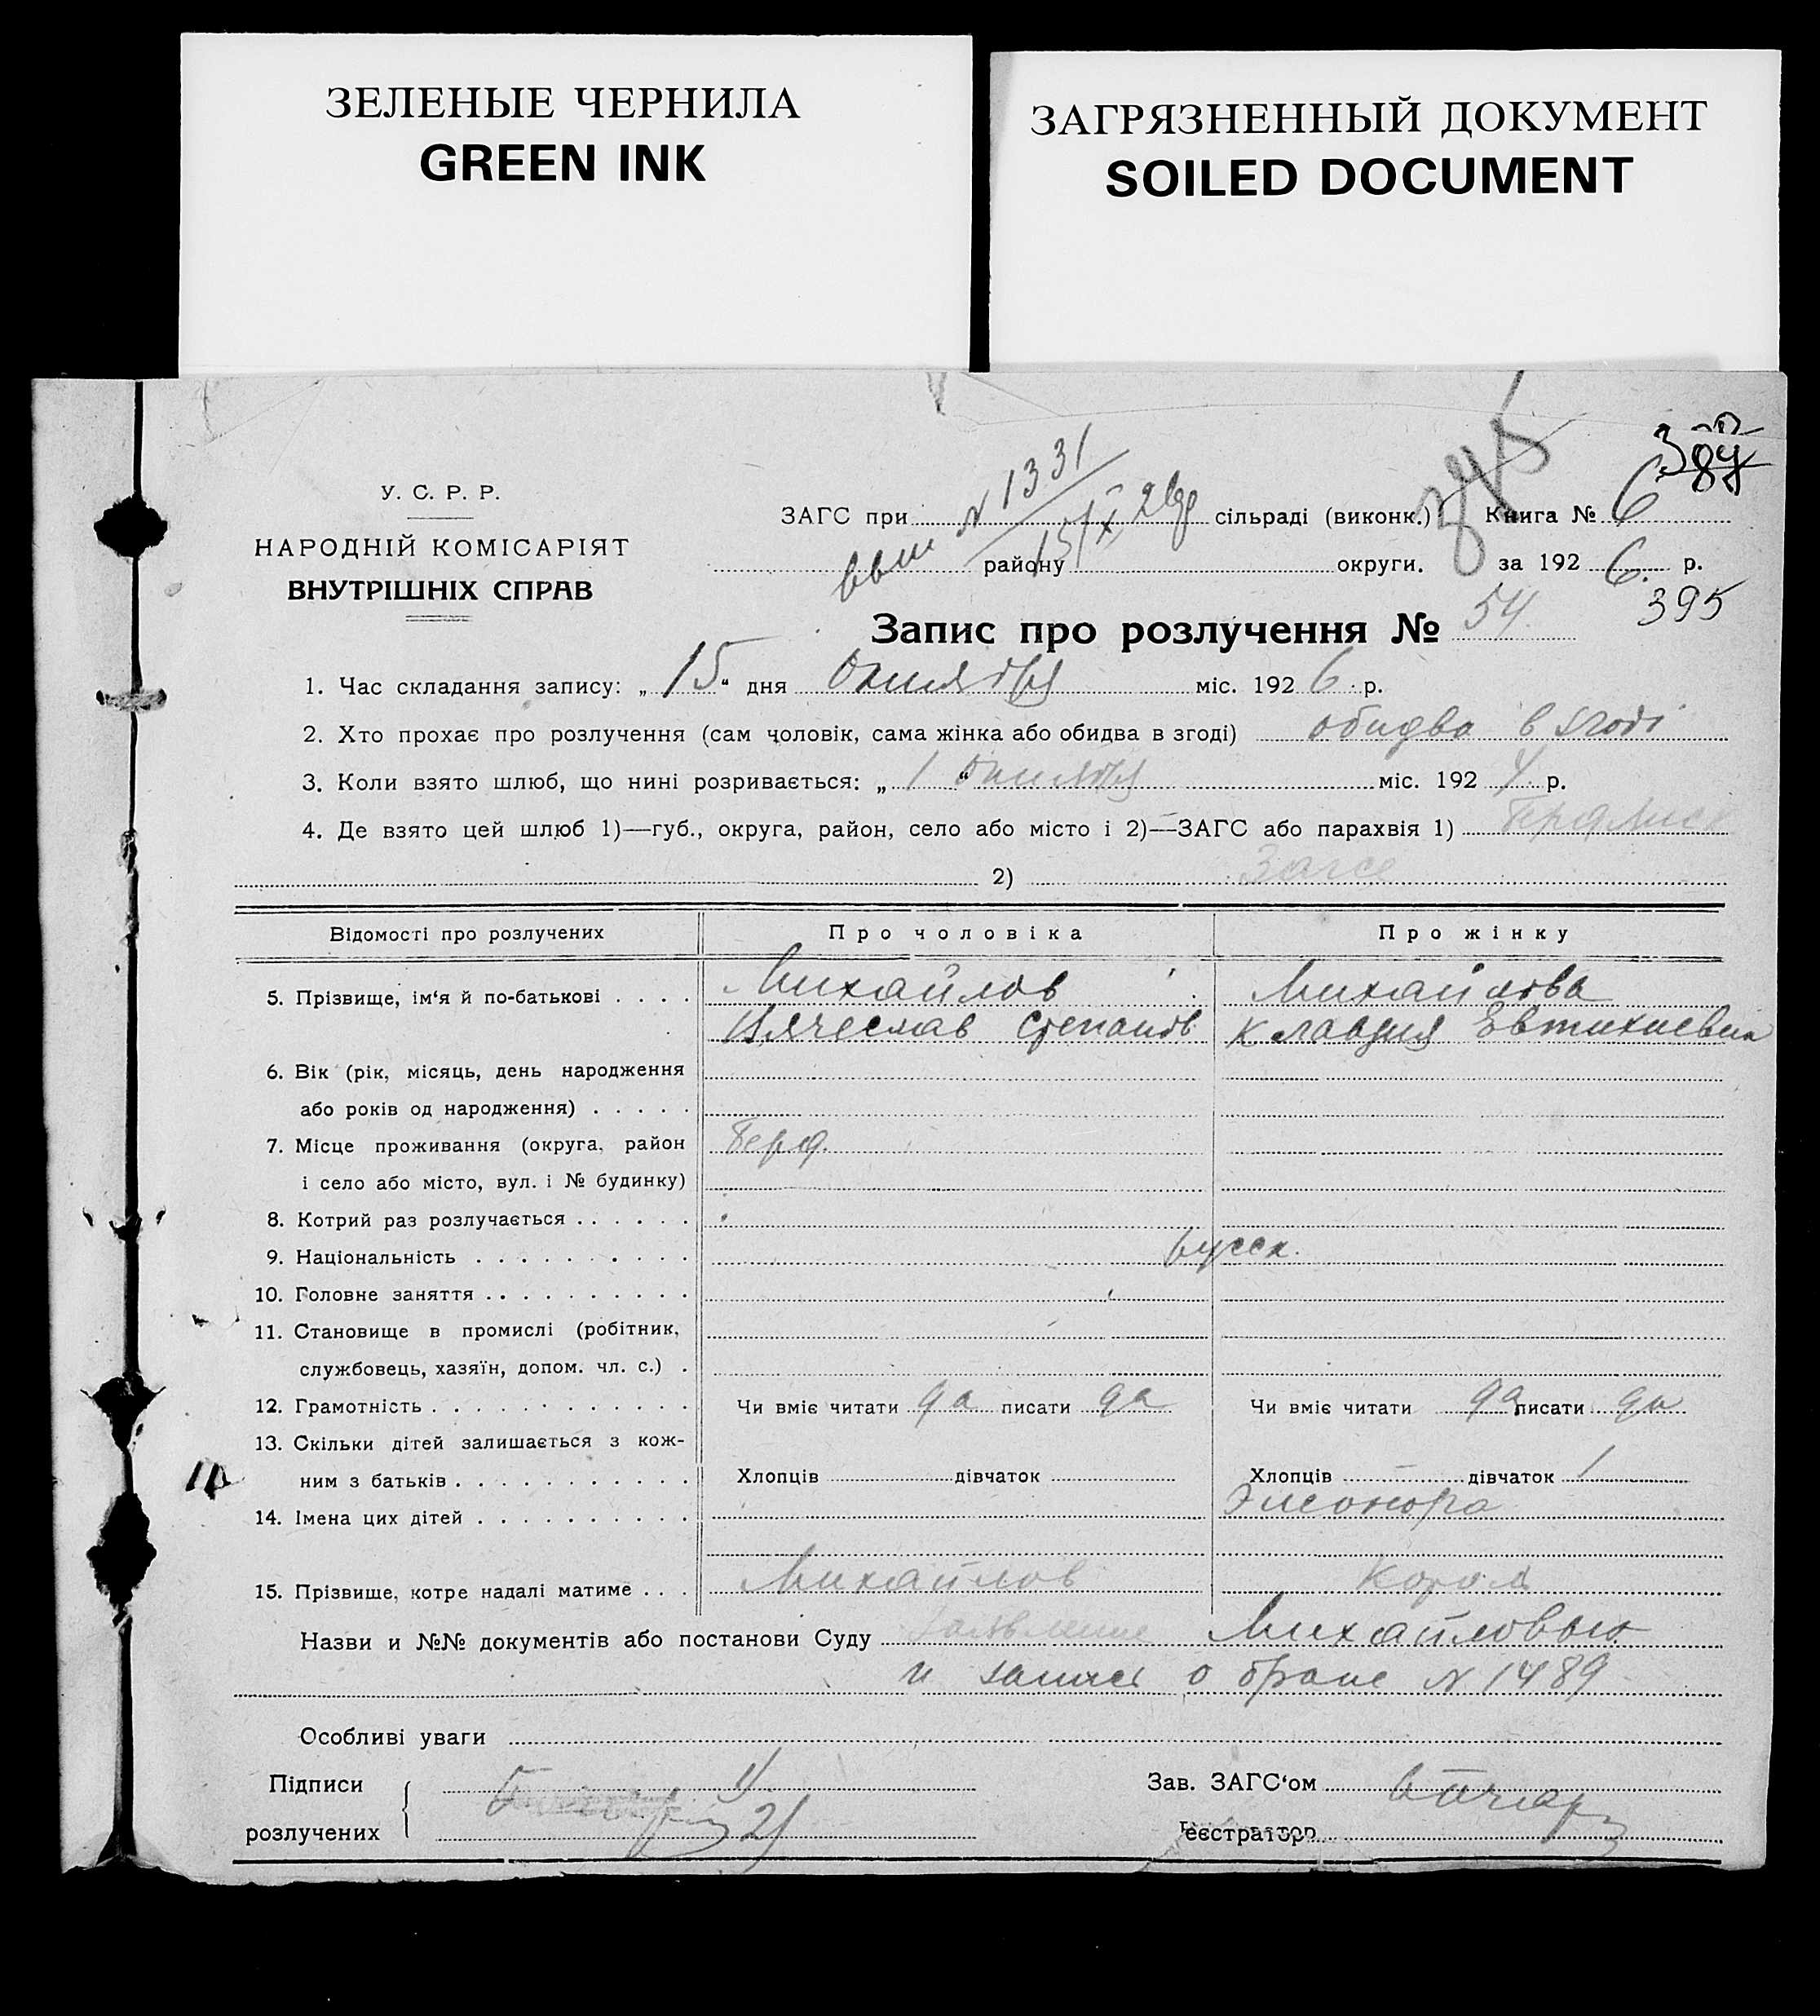 ЗЕЛЕНЫЕ ЧЕРНИЛА
GREEN INK
ЗАГРЯЗНЕННЫЙ ДОКУМЕНТ
SOILED DOCUMENT
У. С. Р. Р.
НАРОДНІЙ КОМІСАРІЯТ
ВНУТРІШНІХ СПРАВ
N 1331
ЗАГС при сільраді (виконк.) Книга № 6
району округи. за 192 6. р.
395
Запис про розлучення № 54.
1. Час складання запису: „ 15 “ дня Октября міс. 192 6 р.
2. Хто прохає про розлучення (сам чоловік, сама жінка або обидва в згоді) обидва в згоді
3. Коли взято шлюб, що нині розривається: „ 1 “ Октября міс. 192 4 р.
4. Де взято цей шлюб 1)—губ., округа, район, село або місто і 2)—ЗАГС або парахвія 1)
2) Загсе
Відомості про розлучених Про чоловіка Про жінку
5. Прізвище, ім‘я й по-батькові . . . . Михайлов Михайлова
Вячеслав Степанов Клавдия Евтихиевна
6. Вік (рік, місяць, день народження
або років од народження) . . . . .
7. Місце проживання (округа, район Берд.
і село або місто, вул. і № будинку)
8. Котрий раз розлучається . . . . . .
9. Національність . . . . . . . . . . русск.
10. Головне заняття . . . . . . . . . .
11. Становище в промислі (робітник,
службовець, хазяїн, допом. чл. с.) .
12. Грамотність . . . . . . . . . . . . Чи вміє читати да писати да Чи вміє читати да писати да
13. Скільки дітей залишається з кож-
ним з батьків . . . . . . . . . . . Хлопців дівчаток Хлопців — дівчаток 1
14. Імена цих дітей . . . . . . . . . . Элеонора
15. Прізвище, котре надалі матиме . . . Михайлов Король
Назви и №№ документів або постанови Суду Заявление Михайловых
и запись о браке N 1489
Особливі уваги
Підписи Зав. ЗАГС‘ом
розлучених Реєстратор